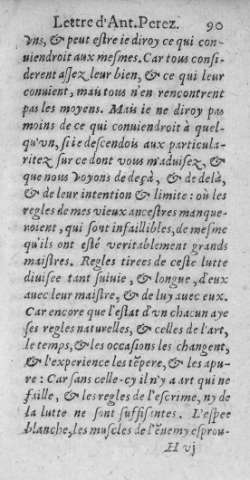 Lettre d'Ant. Perez. 90
vns, & peut estre ie diroy ce qui con-
uiendroit aux mesmes. Car tous consi-
derent assez leur bien, & ce qui leur
conuient, mais tous n'en rencontrent
pas les moyens. Mais ie ne diroy pas
moins de ce qui conuiendroit à quel-
qu'vn, si ie descendois aux particula-
ritez sur ce dont vous m'aduisez, &
que nous voyons de deçà, & de delà,
& de leur intention & limite: où les
regles de mes vieux ancestres manque-
roient, qui sont infaillibles, de mesme
qu'ils ont esté veritablement grands
maistres. Regles tirees de ceste lutte
diuisee tant suiuie, & longue, d'eux
auec leur maistre, & de luy auec eux.
Car encore que l'estat d'vn chacun aye
ses regles naturelles, & celles de l'art,
le temps, & les occasions les changent,
& l'experience les tẽpere, & les apu-
re: Car sans celle-cy il n'y a art qui ne
faille, & les regles de l'escrime, ny de
la lutte ne sont suffisentes. L'espee
blanche, les muscles de l'ẽnemy esprou-
H vj